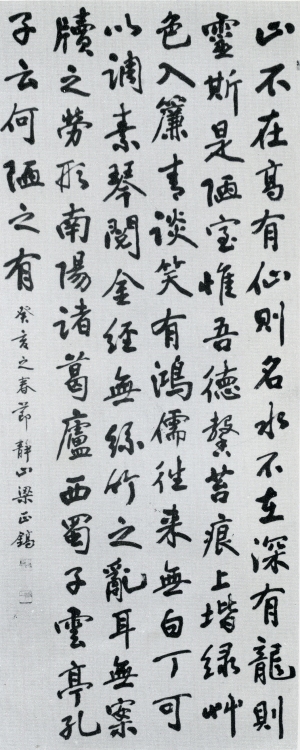 山不在高有仙則名水不在深有龍則
靈斯是陋室惟吾德馨苔痕上堦綠艸
色入簾青談笑有鴻儒往来無白丁可
以調素琴閱金經無絲竹之亂耳無案
牘之勞形南陽諸葛廬西蜀子雲亭孔
子云何陋之有 癸亥之春節靜山梁正錫